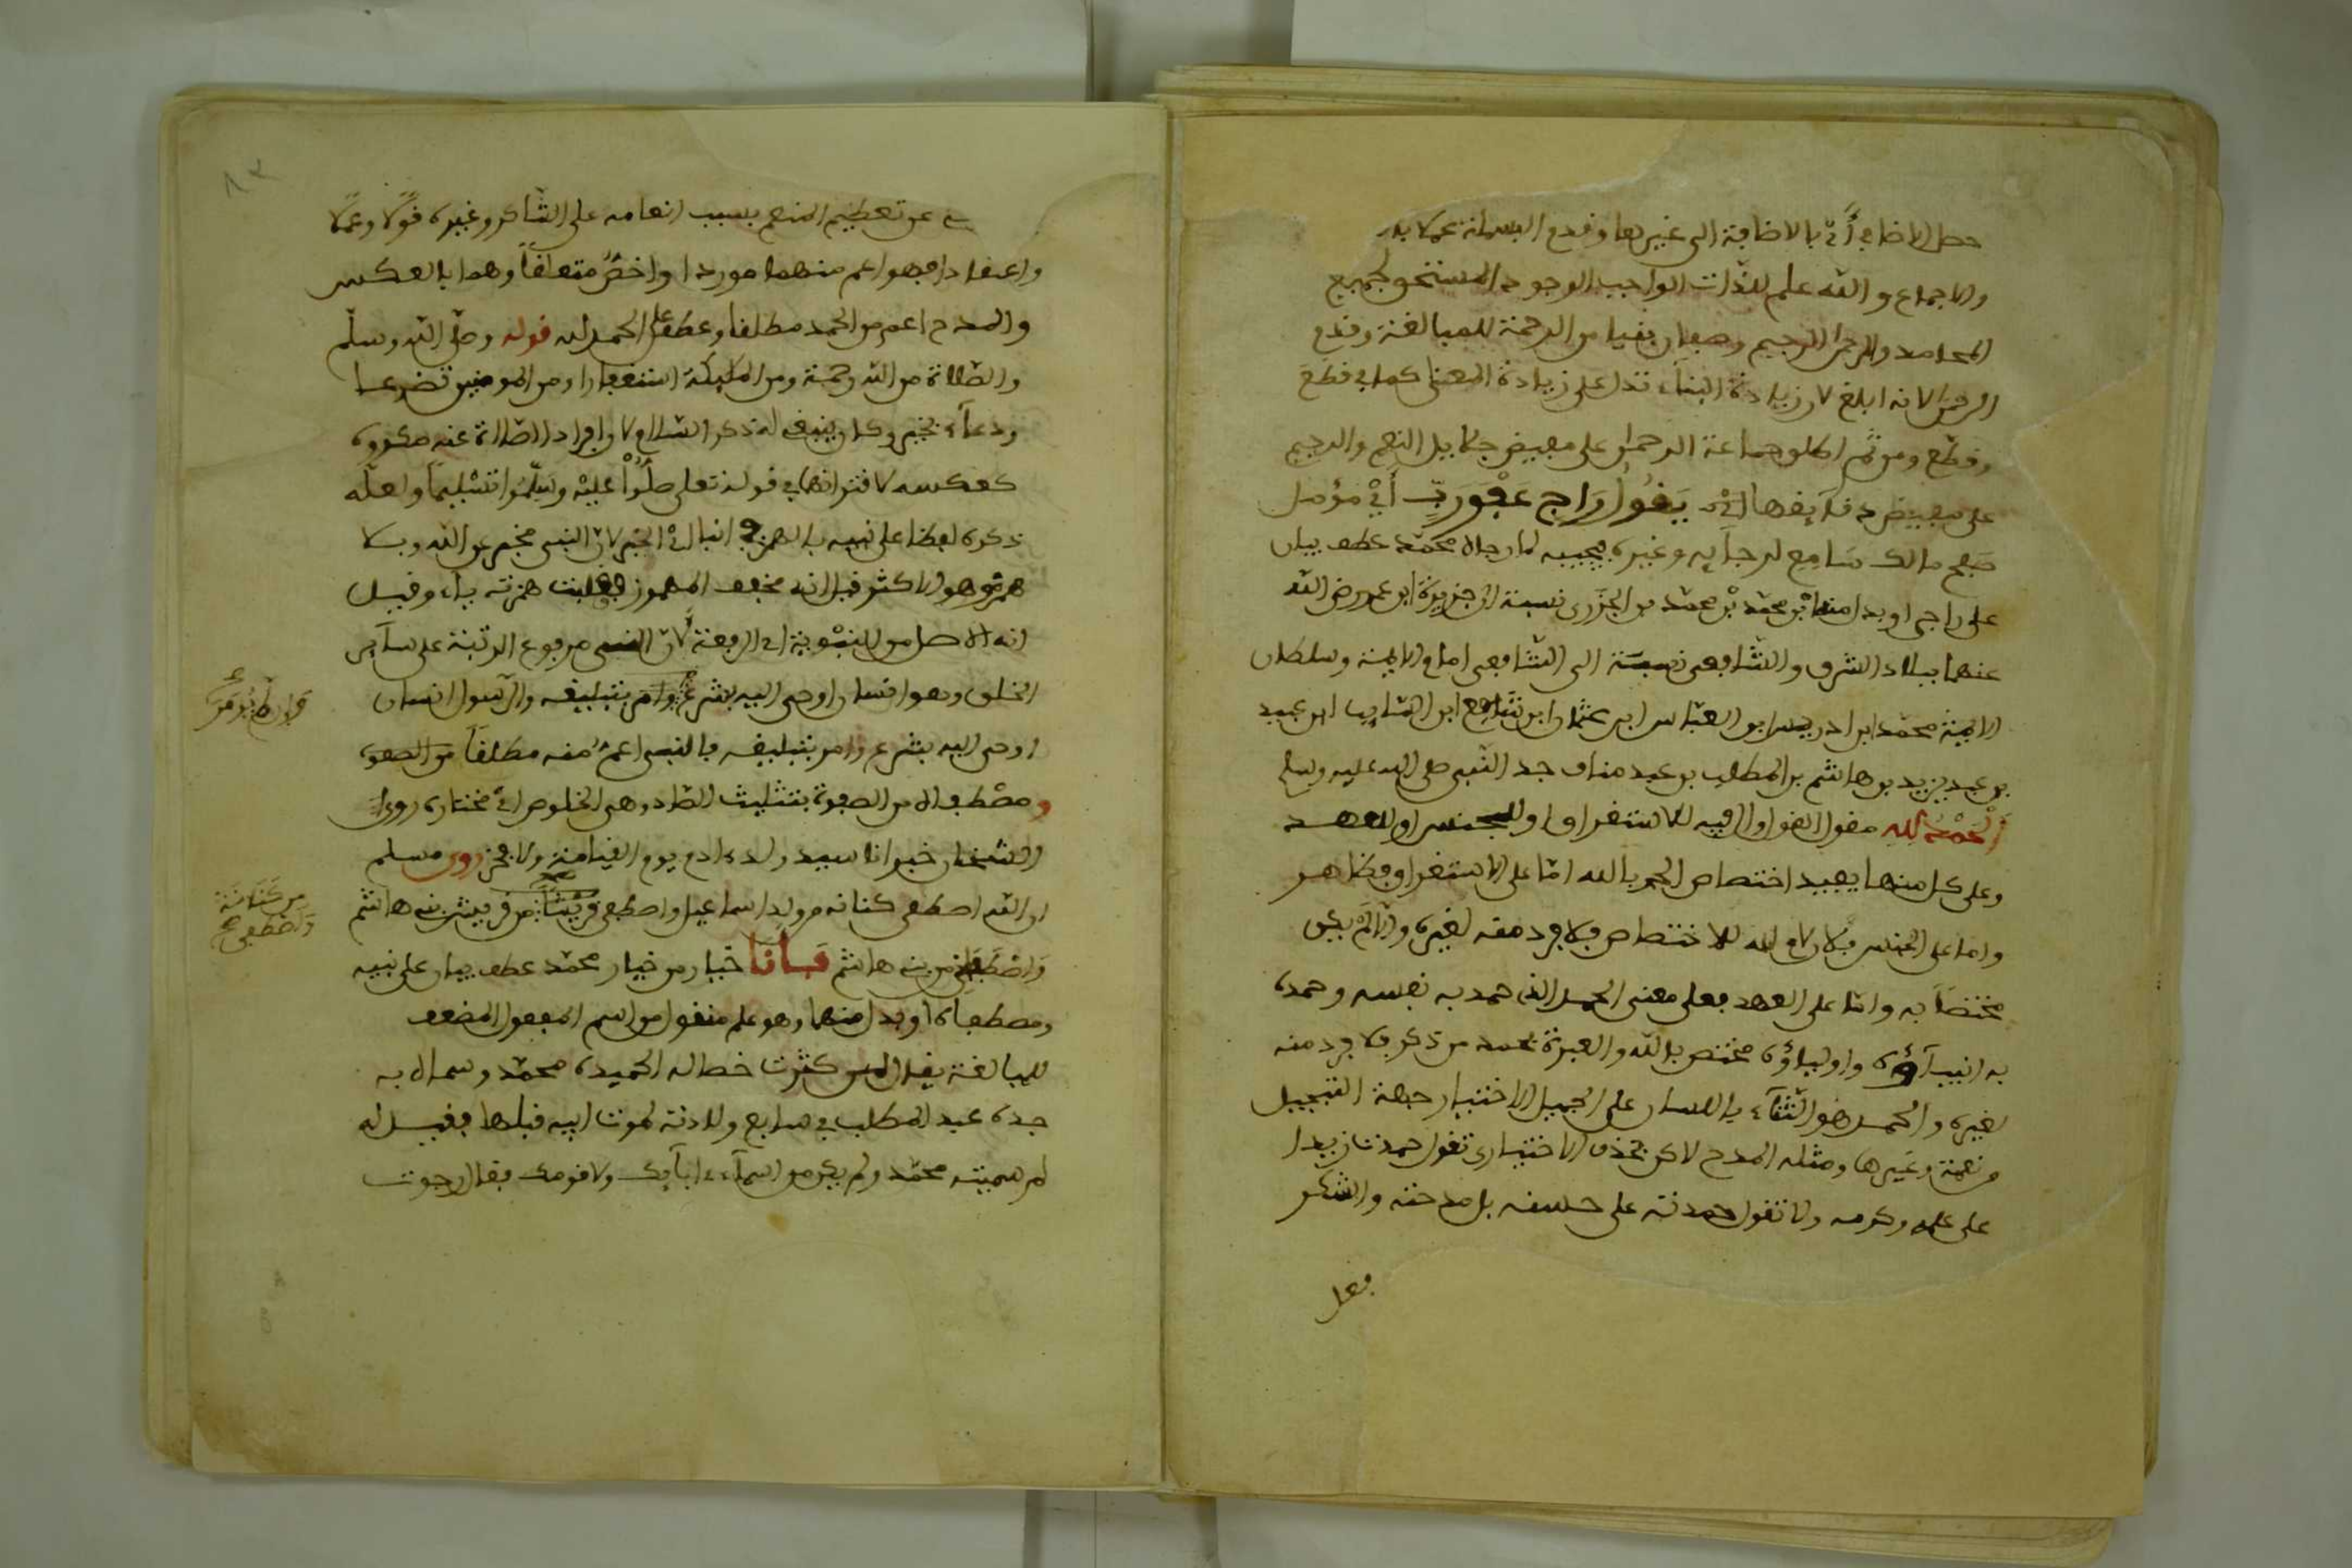 حصل الاضافي أي بالاضافة الى غيرها وقدم البسملة عملا به
والاجماع والله علم للذات الواجب الوجود المستحق لجميع
المحامد والرحمن الرحيم وصفان بنيا من الرحمة للمبالغة وقدم
الرحمن لانه ابلغ لان زيادة البناء تدل على زيادة المعنى كما في قطع
وقطّع ومن ثم اطلق جماعة الرحمن على مفيض جلايل النعم والرحيم
على مفيض دقايقها يَقُولُ رَاجِي عَفْوِ رَبٍّ أي مؤمل
صفح مالك سَامِعِ لرجايه وغيره فيجيبه لما رجاه محمّد عطف بيان
على راجي او بدل منه ابن محمّد بن محمّد بن الجزري نسبة الى جزيرة ابن عمر رضي الله
عنهما ببلاد الشرق والشافعي نسبة الى الشافعي امام الايمة وسلطان
الايمة محمّد ابن ادريس ابن العبّاس ابن عثمان ابن شافع ابن السّايب ابن عبيد
بن عبد يزيد بن هاشم بن المطلب بن عبد مناف جد النّبي صلى الله عليه وسلم
أَلْحَمْدُ لِله مقول القول وال فيه للاستغراق او للجنس او للعهد
وعلى كل منها يفيد اختصاص الحمد بالله امّا على الاستغراق فظاهر
واما على الجنس فلان لام لله للاختصاص فلا فرد منه لغيره والا لم يكن
مختصّا به وامّا على العهد فعلى معنى الحمد الذي حمد به نفسه وحمده
به انبيآؤه واولياؤه مختص بالله والعبرة بحمد من ذكر فلا فرد منه
لغيره والحمد هو الثنآء باللسان على الجميل الاختياري جهة التبجيل
من نعمة وغيرها ومثله المدح لاكن بحذف الاختياري تقول حمدت زيدا
على علمه وكرمه ولا تقول حمدته على حسنه بل مدحته والشكر
فعل
ينبي عن تعظيم المنعم بسبب انعامه على الشّاكر وغيره قولًا وعملًا
واعتقادا فهو اعم منهما موردا واخصّ متعلقاً وهما بالعكس
والمدح اعم من الحمد مطلقا وعطف على الحمد لله قوله وصلّى الله وسلّم
والصّلاة من الله رحمة ومن الملايكة استغفارا ومن المومنين تضرعا
ودعآء بخير وكان ينبغي له ذكر السّلام لان افراد الصّلاة عنه مكروه
كعكسه لاقترانهما في قوله تعلى صلُّوا عليْه وسَلِّمُوا تسْليماً ولعلّه
ذكره لفظا على نبيه بالهمز من النبإ أي الخبر لان النبي مخبر عن الله وبلا
همز وهو الاكثر قيل انه مخفف المهموز بقلب همزته ياء وقيل
انه الاصل من النبوة أي الرفعة لانّ النبي مرفوع الرّتبة على سآير
الخلق وهو انسان اوحي اليه بشرع وامر بتبليغه والرّسول انسان
وإن لم يُومَرْ
اوحي اليه بشرع وامر بتبليغه فالنبي اعمّ منه مطلقاً من الصفوة
ومصْطفاه من الصفوة بتثليث الصّاد وهي الخلوص أي مختاره روى
الشيخان خبر انا سيد ولد ادم يوم القيامة ولا فخر وروى مسلم
ان الله اصطفى كنانه من ولد اسماعيل واصطفى قريشا من قريش بني هاشم
من كَنَانَة واصْطفى صح
وَاصْطَفَانِي من بني هاشم فَـأَنَا خيار من خيار محمّد عطف بيان على نبيه
ومصطفاه او بدل منهما وهو علم منقول من اسم المفعول المضعف
للمبالغة يقال لمن كثرت خصاله الحميدة محمّد وسماه به
جده عبد المطلب في سابع ولادته لموت ابيه قبلها فقيل له
لم سميته محمّد ولم يكن من اسمآء ابآيك ولا قومك فقال رجوت